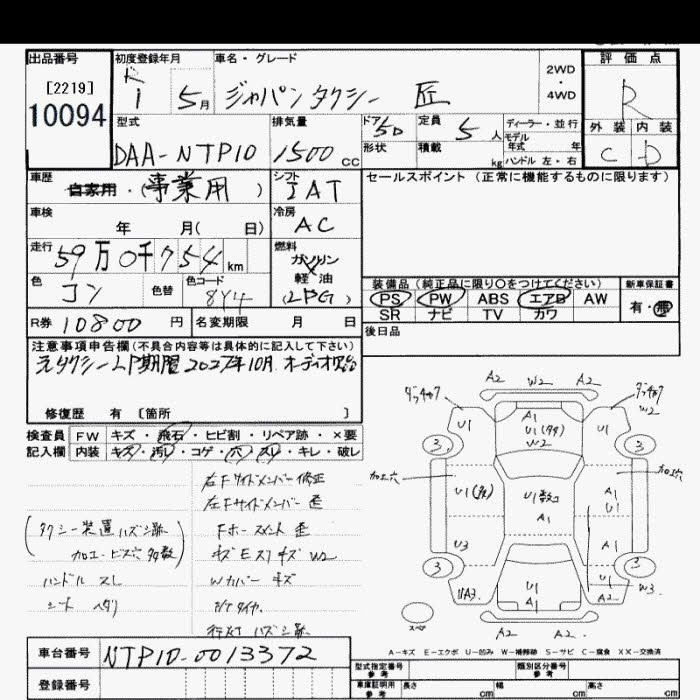 出品番号
[2219]
10094
初度登録年月
R
1 5月
車名・グレード
ジャパンタクシー 匠
2WD
・
4WD
評価点
R
外装 内装
C D
型式
DAA-NTP10
排気量
1500 cc
ドア 5D
形状
定員 5人
積載 kg
ディーラー・並行
モデル
年式 年
ハンドル 左・右
車歴
自家用・(事業用)
シフト
IAT
セールスポイント (正常に機能するものに限ります)
車検
年 月( 日)
冷房
AC
走行
59万0千754km
燃料
ガソリン
軽油
(LPG)
色
コン
色替
色コード
8Y4
装備品 (純正品に限り○をつけてください)
PS PW ABS エアB AW
SR ナビ TV カワ
新車保証書
有・無
R券 10800円
名変期限 月 日
後日品
注意事項申告欄(不具合内容等は具体的に記入して下さい)
元タクシー LP期限 2027年10月 オーディオ欠品
修復歴 有 〔箇所 〕
検査員
記入欄
FW キズ・飛石・ヒビ割・リペア跡・×要
内装 キズ・汚レ・コゲ・穴・スレ・キレ・破レ
右Fサイドメンバー修正
左Fサイドメンバー歪
(タクシー装置ハズシ跡
加工・ビス穴多数)
Fホースメント歪
キズEスリキズW2
ハンドルスレ
Wカバーキズ
シートヘタリ
行灯ハズシ跡
A2 W2 A2
ダッキャク
ダッキャク
W2
U1
A1
U1(多)
W2
U1
3
3
加工穴
加工穴
U1(多)
U1多数コ
A1
A1
U1
U3
A1
3
3
UA3
U1
A1
U1
A2
W3
スペア
A2 A2
A-キズ E-エクボ U-凹み W-補修跡 S-サビ C-腐食 XX-交換済
車台番号 NTP10-0013372
登録番号
型式指定番号
参考
類別区分番号
参考
車庫証明用
参考
長さ cm 幅 cm 高さ cm